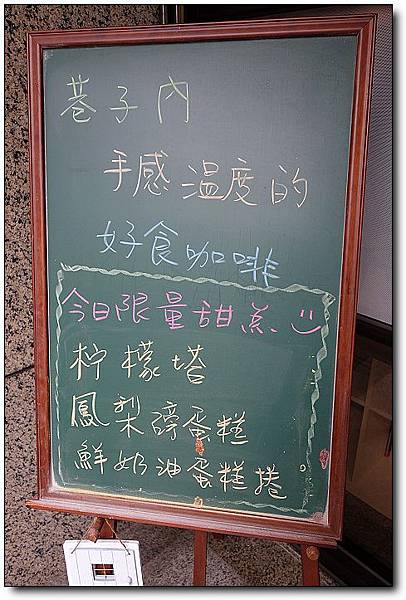 巷子內
手感溫度的
好食咖啡
今日限量甜点
柠檬塔
鳳梨磅蛋糕
鮮奶油蛋糕捲